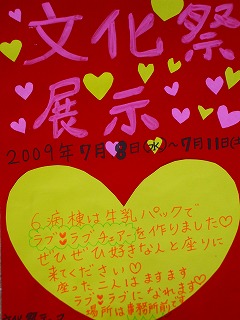 文化祭
展示
2009年7月8日(水)～7月11日(土
6病棟は牛乳パックで
ラブ♥ラブチェアーを作りました♡
ぜひぜひ好きな人と座りに
来てください♡
座った二人はますます
ラブ♥ラブになれます♡
場所は事務所前です